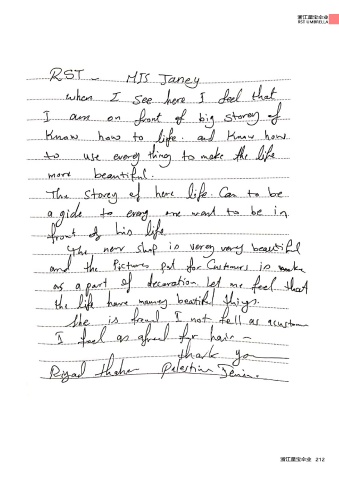 浙江星宝伞业
RST UMBRELLA
RST - MIS Janey
when I see here I feel that
I am on front of big storey of
Know how to life. and Know how
to use every thing to make the life
more beautiful.
The storey of here life. Can to be
a gide to every one want to be in
front of his life.
The new shop is verey verey beautiful
and the Pictures put for Customers is make
as a part of decoration let me feel that
the life have maney beatiful things.
She is frend I not fell as acustom
I feel as afrend for hair -
thank you
Riyad thaher Palestine Jenin.
浙江星宝伞业 212